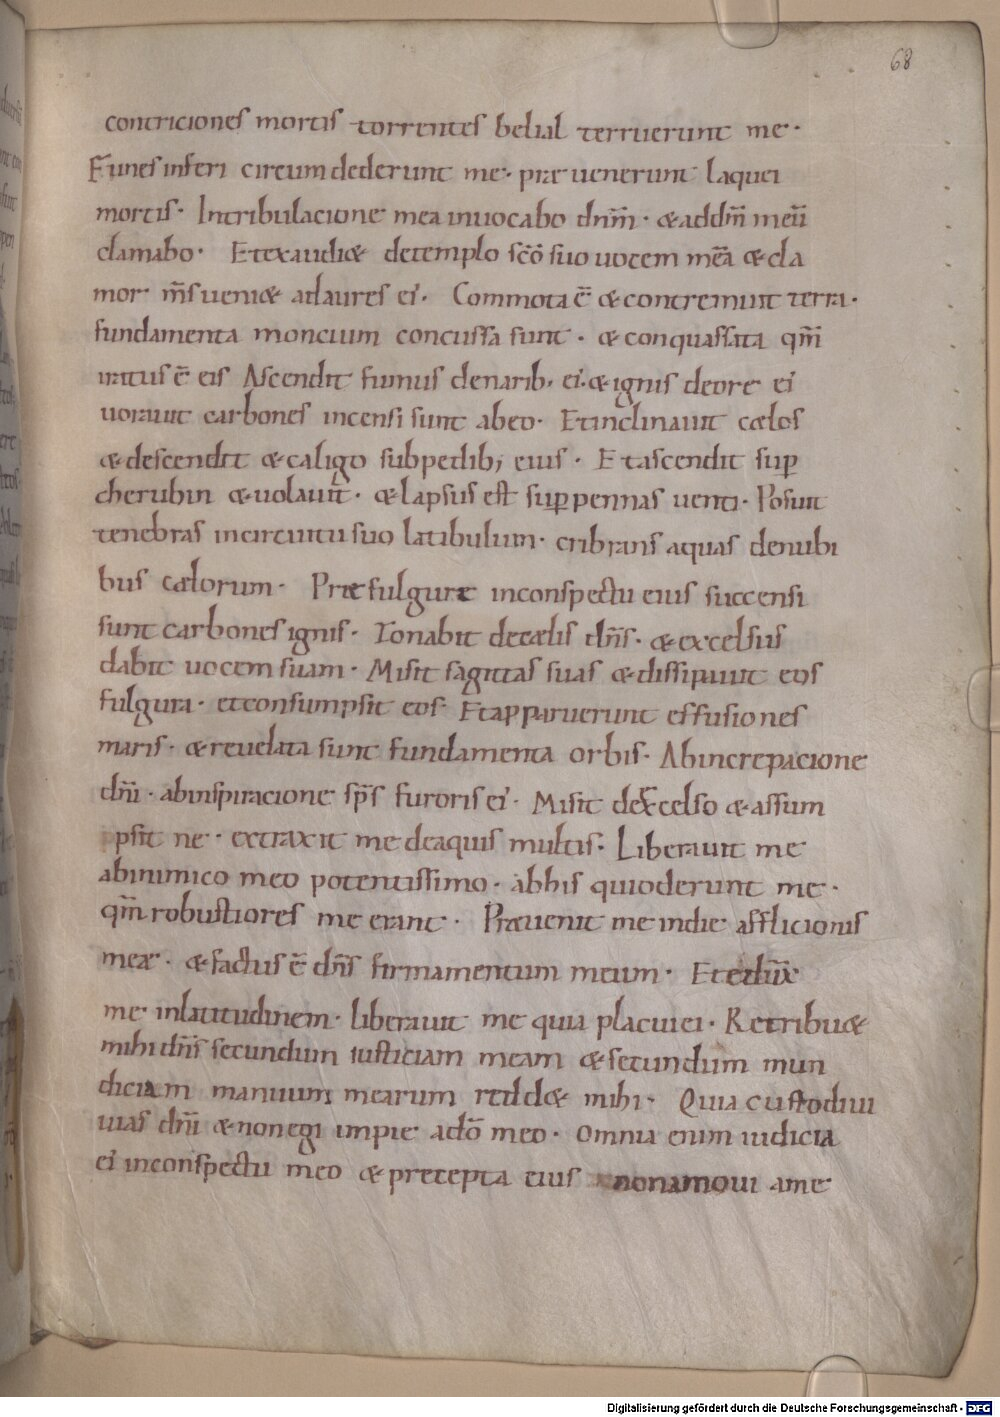 68
contriciones mortis torrentes belial terruerunt me·
Funes inferi circumdederunt me· præuenerunt laquei
mortis· Intribulacione mea inuocabo dnm̄· & addm̄ meū
clamabo· Etexaudi& detemplo sc̄o suo uocem meā & cla
mor m̄s ueni& adaures ei· Commota ē & contremuit terra·
fundamenta moncium concussa sunt· & conquassata qm̄
iratus ē eis Ascendit fumus denarib; ei· & ignis deore ei
uorauit carbones incensi sunt abeo· Etinclinauit cælos
& descendit & caligo subpedib; eius· Etascendit suꝑ
cherubin & uolauit· & lapsus est suꝑ pennas uenti· Posuit
tenebras incircuitu suo latibulum· cribrans aquas denubi
bus cælorum· Præfulgure inconspectu eius succensi
sunt carbones ignis· Tonabit decælis dn̄s· & excelsus
dabit uocem suam· Misit sagittas suas & dissipauit eos
fulgura· etconsumpsit eos Etapparuerunt effusiones
maris· & reuelata sunt fundamenta orbis· Abincrepacione
dn̄i· abinspiracione sp̄s furoris ei· Misit deexcelso & assum
psit me· extraxit me deaquis multis· Liberauit me
abinimico meo potentissimo· abhis quioderunt me·
qm̄ robustiores me erant· Præuenit me indie afflicionis
meæ· & factus ē dn̄s firmamentum meum· Et eduxit
me inlatitudinem· liberauit me quia placuiei· Retribu&
mihi dn̄s secundum iusticiam meam & secundum mun
diciam manuum mearum redd& mihi· Quia custodiui
uias dn̄i & nonegi impie adō meo· Omnia enim iudicia
ei inconspectu meo & precepta eius nonamoui ame
Digitalisierung gefördert durch die Deutsche Forschungsgemeinschaft - DFG